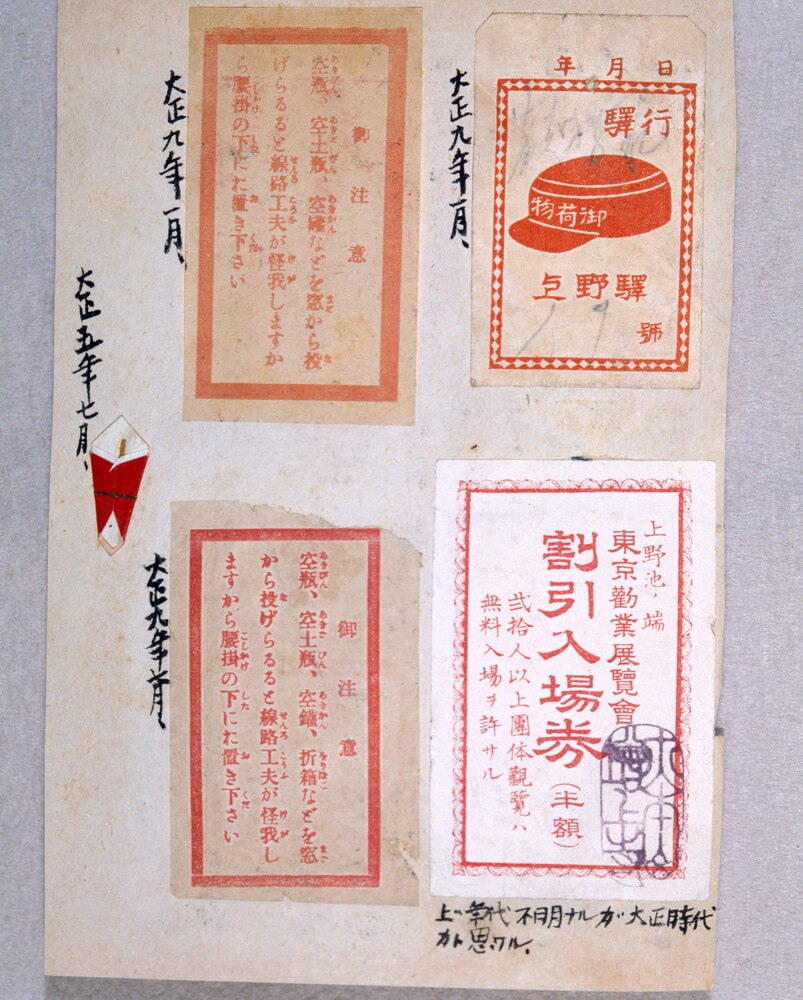 年月日
驛行
御荷物
上野驛
號
大正九年一月、
御注意
空瓶、空土瓶、空罐などを窓から投
げらるると線路工夫が怪我しますか
ら腰掛の下にお置き下さい
大正九年一月、
大正五年七月、
上野池ノ端
東京勸業展覽會
割引入場券(半額)
弐拾人以上團体觀覽ハ
無料入場ヲ許サル
上ハ年代不明ナルガ大正時代
カト思ワル、
御注意
空瓶、空土瓶、空罐、折箱などを窓
から投げらるると線路工夫が怪我し
ますから腰掛の下にお置き下さい
大正九年